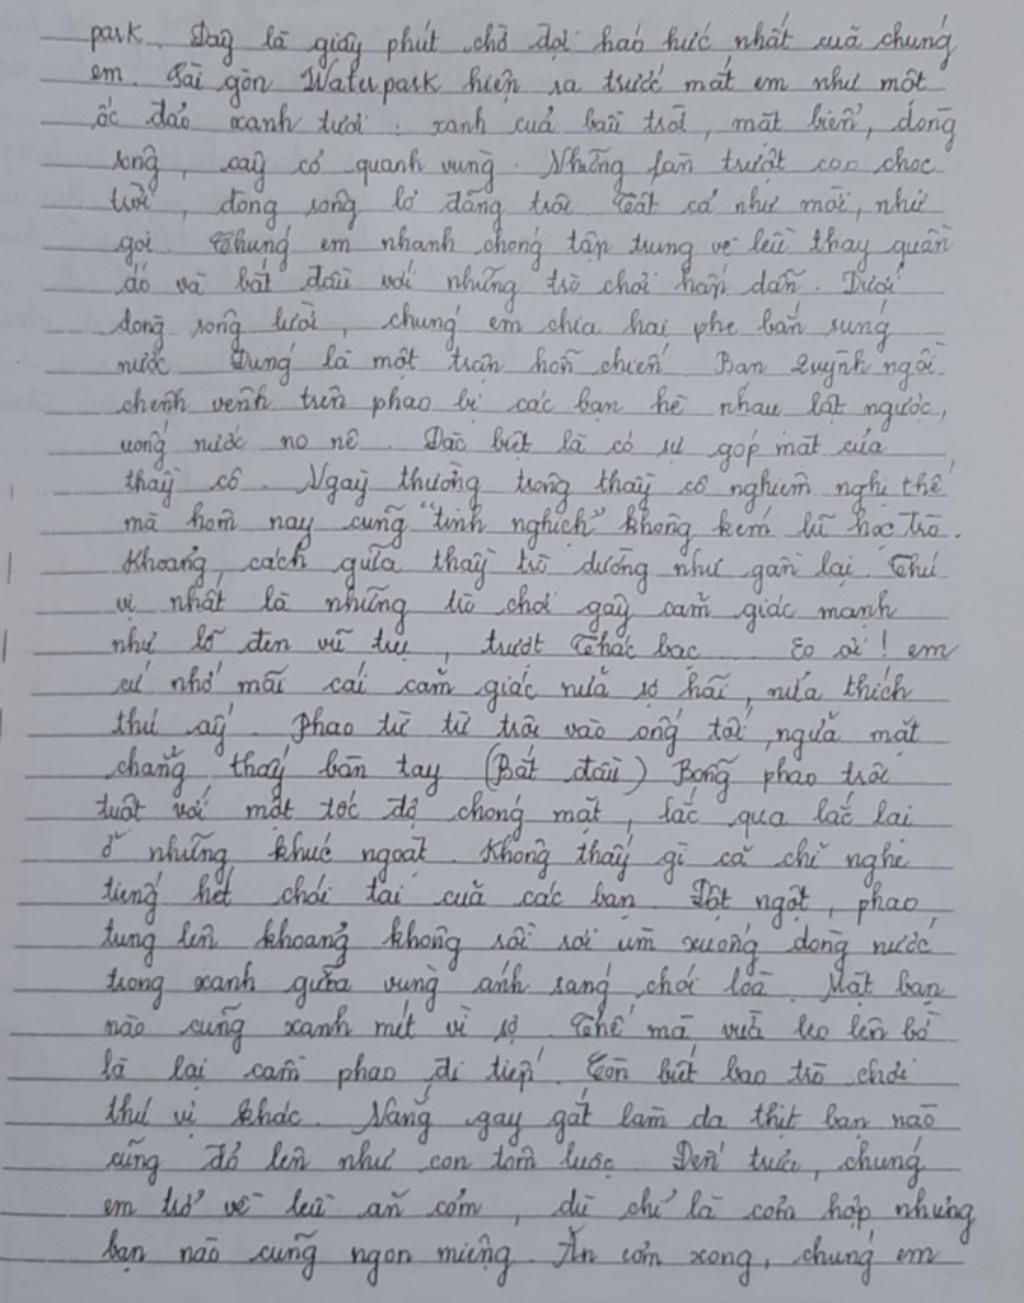 park. Đây là giây phút chờ đợi háo hức nhất của chúng
em. Sài gòn Waterpark hiện ra trước mắt em như một
ốc đảo xanh tươi : xanh của bầu trời, mặt biển, dòng
sông, cây cỏ quanh vùng. Những làn trượt cao chọc
trời, dòng sông lơ đãng trôi. Tất cả như mời, như
gọi. Chúng em nhanh chóng tập trung về lều thay quần
áo và bắt đầu với những trò chơi hấp dẫn. Dưới
dòng sông lười, chúng em chia hai phe bắn súng
nước. Đúng là một trận hỗn chiến. Bạn Quỳnh ngồi
chễnh vênh trên phao bị các bạn hè nhau lật ngược,
uống nước no nê. Đặc biệt là có sự góp mặt của
thầy cô. Ngày thường trông thầy cô nghiêm nghị thế
mà hôm nay cũng "tinh nghịch" không kém lũ học trò.
Khoảng cách giữa thầy trò dường như gần lại. Thú
vị nhất là những trò chơi gây cảm giác mạnh
như lỗ đen vũ trụ, trượt Thác bạc ... Eo ơi! em
cứ nhớ mãi cái cảm giác nửa sợ hãi, nửa thích
thú ấy. Phao từ từ trôi vào ống tối, ngửa mặt
chẳng thấy bàn tay (Bắt đầu) Bỗng phao trôi
tuột với một tốc độ chóng mặt, lắc qua lắc lại
ở những khúc ngoặt. Không thấy gì cả chỉ nghe
tiếng hét chói tai của các bạn. Đột ngột, phao
tung lên khoảng không rồi rơi ùm xuống dòng nước
trong xanh giữa vùng ánh sáng chói lòa. Mặt bạn
nào cũng xanh mét vì sợ. Thế mà vừa leo lên bờ
là lại cầm phao đi tiếp. Còn biết bao trò chơi
thú vị khác. Nắng gay gắt làm da thịt bạn nào
cũng đỏ lên như con tôm luộc. Đến trưa, chúng
em trở về lều ăn cơm, dù chỉ là cơm hộp nhưng
bạn nào cũng ngon miệng. Ăn cơm xong, chúng em